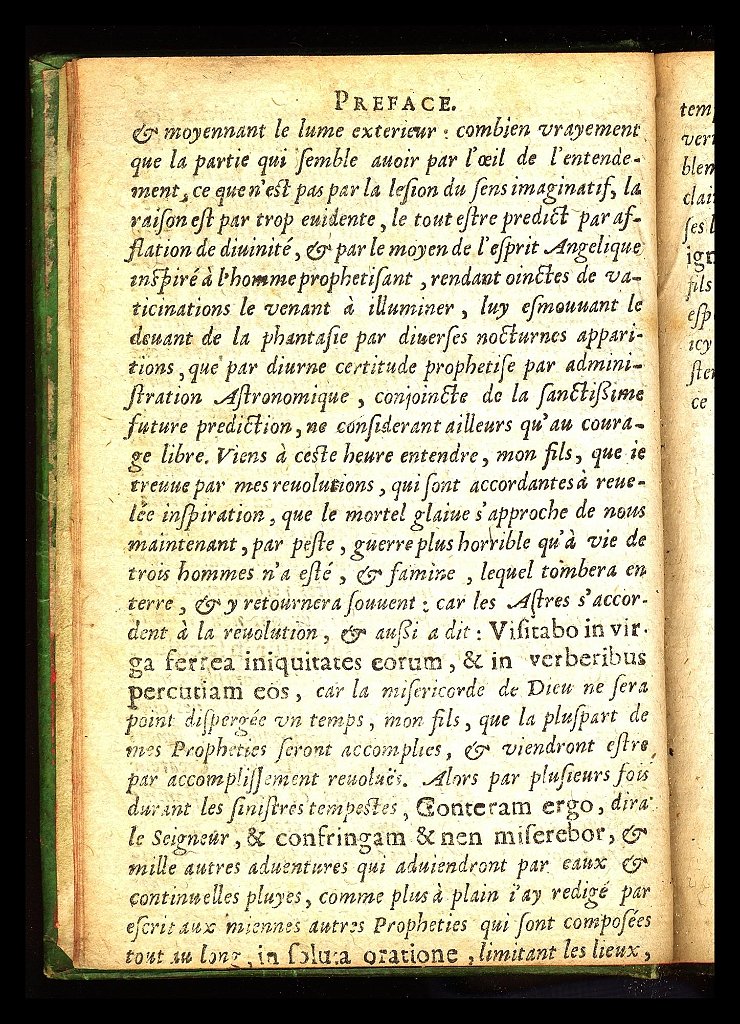 PREFACE.
& moyennant le lume exterieur : combien vrayement
que la partie qui ſemble auoir par l'œil de l'entende-
ment, ce que n'eſt pas par la leſion du ſens imaginatif, la
raiſon eſt par trop euidente, le tout eſtre predict par af-
flation de diuinité, & par le moyen de l'eſprit Angelique
inſpiré à l'homme prophetiſant, rendant oinctes de va-
ticinations le venant à illuminer, luy eſmouuant le
deuant de la phantaſie par diuerſes nocturnes appari-
tions, que par diurne certitude prophetiſe par admini-
ſtration Aſtronomique, conjoincte de la ſanctiſſime
future prediction, ne conſiderant ailleurs qu'au coura-
ge libre. Viens à ceſte heure entendre, mon fils, que ie
treuue par mes reuolutions, qui ſont accordantes à reue-
lée inſpiration, que le mortel glaiue s'approche de nous
maintenant, par peſte, guerre plus horrible qu'à vie de
trois hommes n'a eſté, & famine, lequel tombera en
terre, & y retournera ſouuent : car les Aſtres s'accor-
dent à la reuolution, & auſſi a dit : Viſitabo in vir-
ga ferrea iniquitates eorum, & in verberibus
percutiam eos, car la miſericorde de Dieu ne ſera
point diſpergée vn temps, mon fils, que la pluſpart de
mes Propheties ſeront accomplies, & viendront eſtre
par accompliſſement reuoluës. Alors par pluſieurs fois
durant les ſiniſtres tempeſtes, Conteram ergo, dira
le Seigneur, & confringam & nen miſerebor, &
mille autres aduentures qui aduiendront par eaux &
continuelles pluyes, comme plus à plain i'ay redigé par
eſcrit aux miennes autres Propheties qui ſont compoſées
tout au long, in ſoluta oratione, limitant les lieux,
temp
veri
blem
clai
ſes l
ign
fils
eſp
icy
ſter
ce